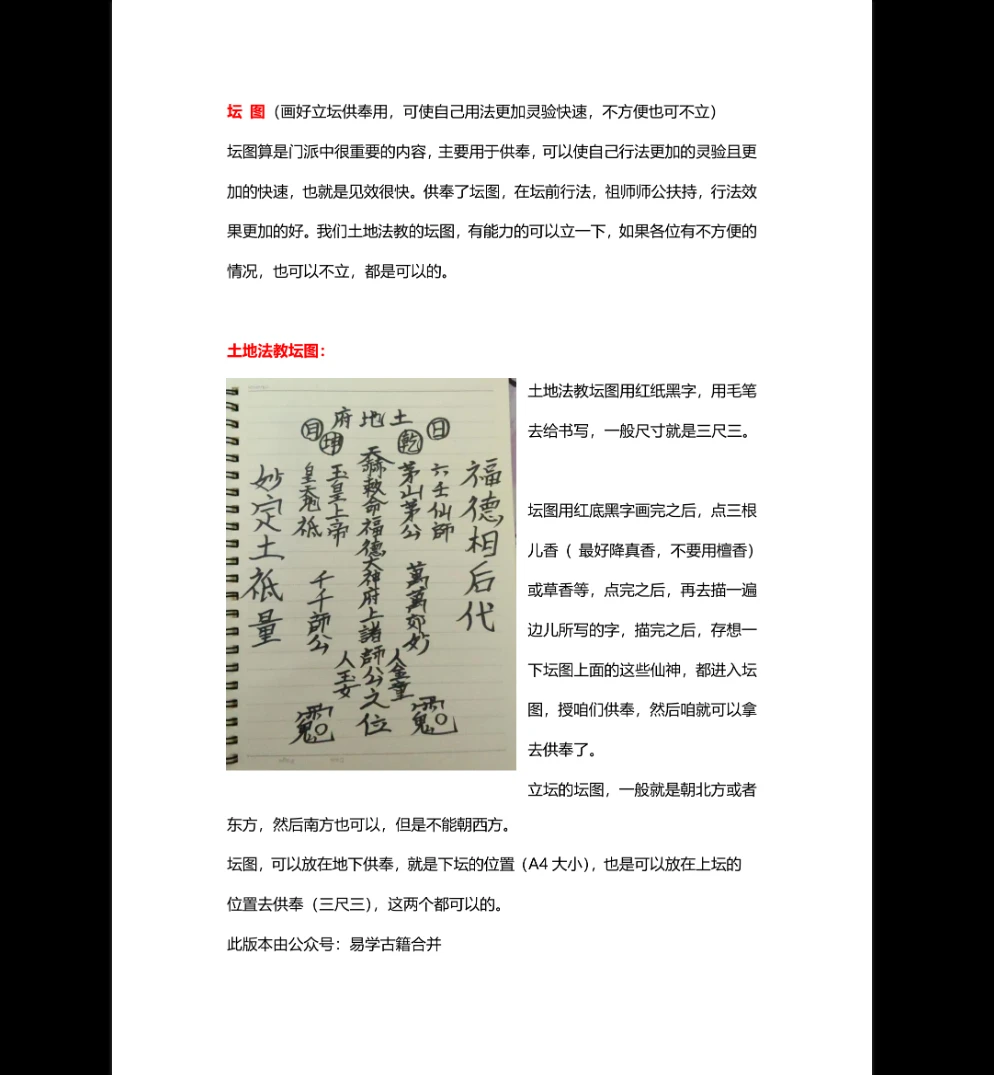 坛 图（画好立坛供奉用，可使自己用法更加灵验快速，不方便也可不立）
坛图算是门派中很重要的内容，主要用于供奉，可以使自己行法更加的灵验且更
加的快速，也就是见效很快。供奉了坛图，在坛前行法，祖师师公扶持，行法效
果更加的好。我们土地法教的坛图，有能力的可以立一下，如果各位有不方便的
情况，也可以不立，都是可以的。
土地法教坛图：
土地府
日
月
乾
坤
福德相后代
六壬仙師
茅山茅公
萬萬師妙
人金童
敕命福德大神府上諸師公之位
玉皇上帝
皇天 祗
千千師公
人玉女
妙定土祇量
土地法教坛图用红纸黑字，用毛笔
去给书写，一般尺寸就是三尺三。
坛图用红底黑字画完之后，点三根
儿香（ 最好降真香，不要用檀香）
或草香等，点完之后，再去描一遍
边儿所写的字，描完之后，存想一
下坛图上面的这些仙神，都进入坛
图，授咱们供奉，然后咱就可以拿
去供奉了。
立坛的坛图，一般就是朝北方或者
东方，然后南方也可以，但是不能朝西方。
坛图，可以放在地下供奉，就是下坛的位置（A4 大小），也是可以放在上坛的
位置去供奉（三尺三），这两个都可以的。
此版本由公众号：易学古籍合并